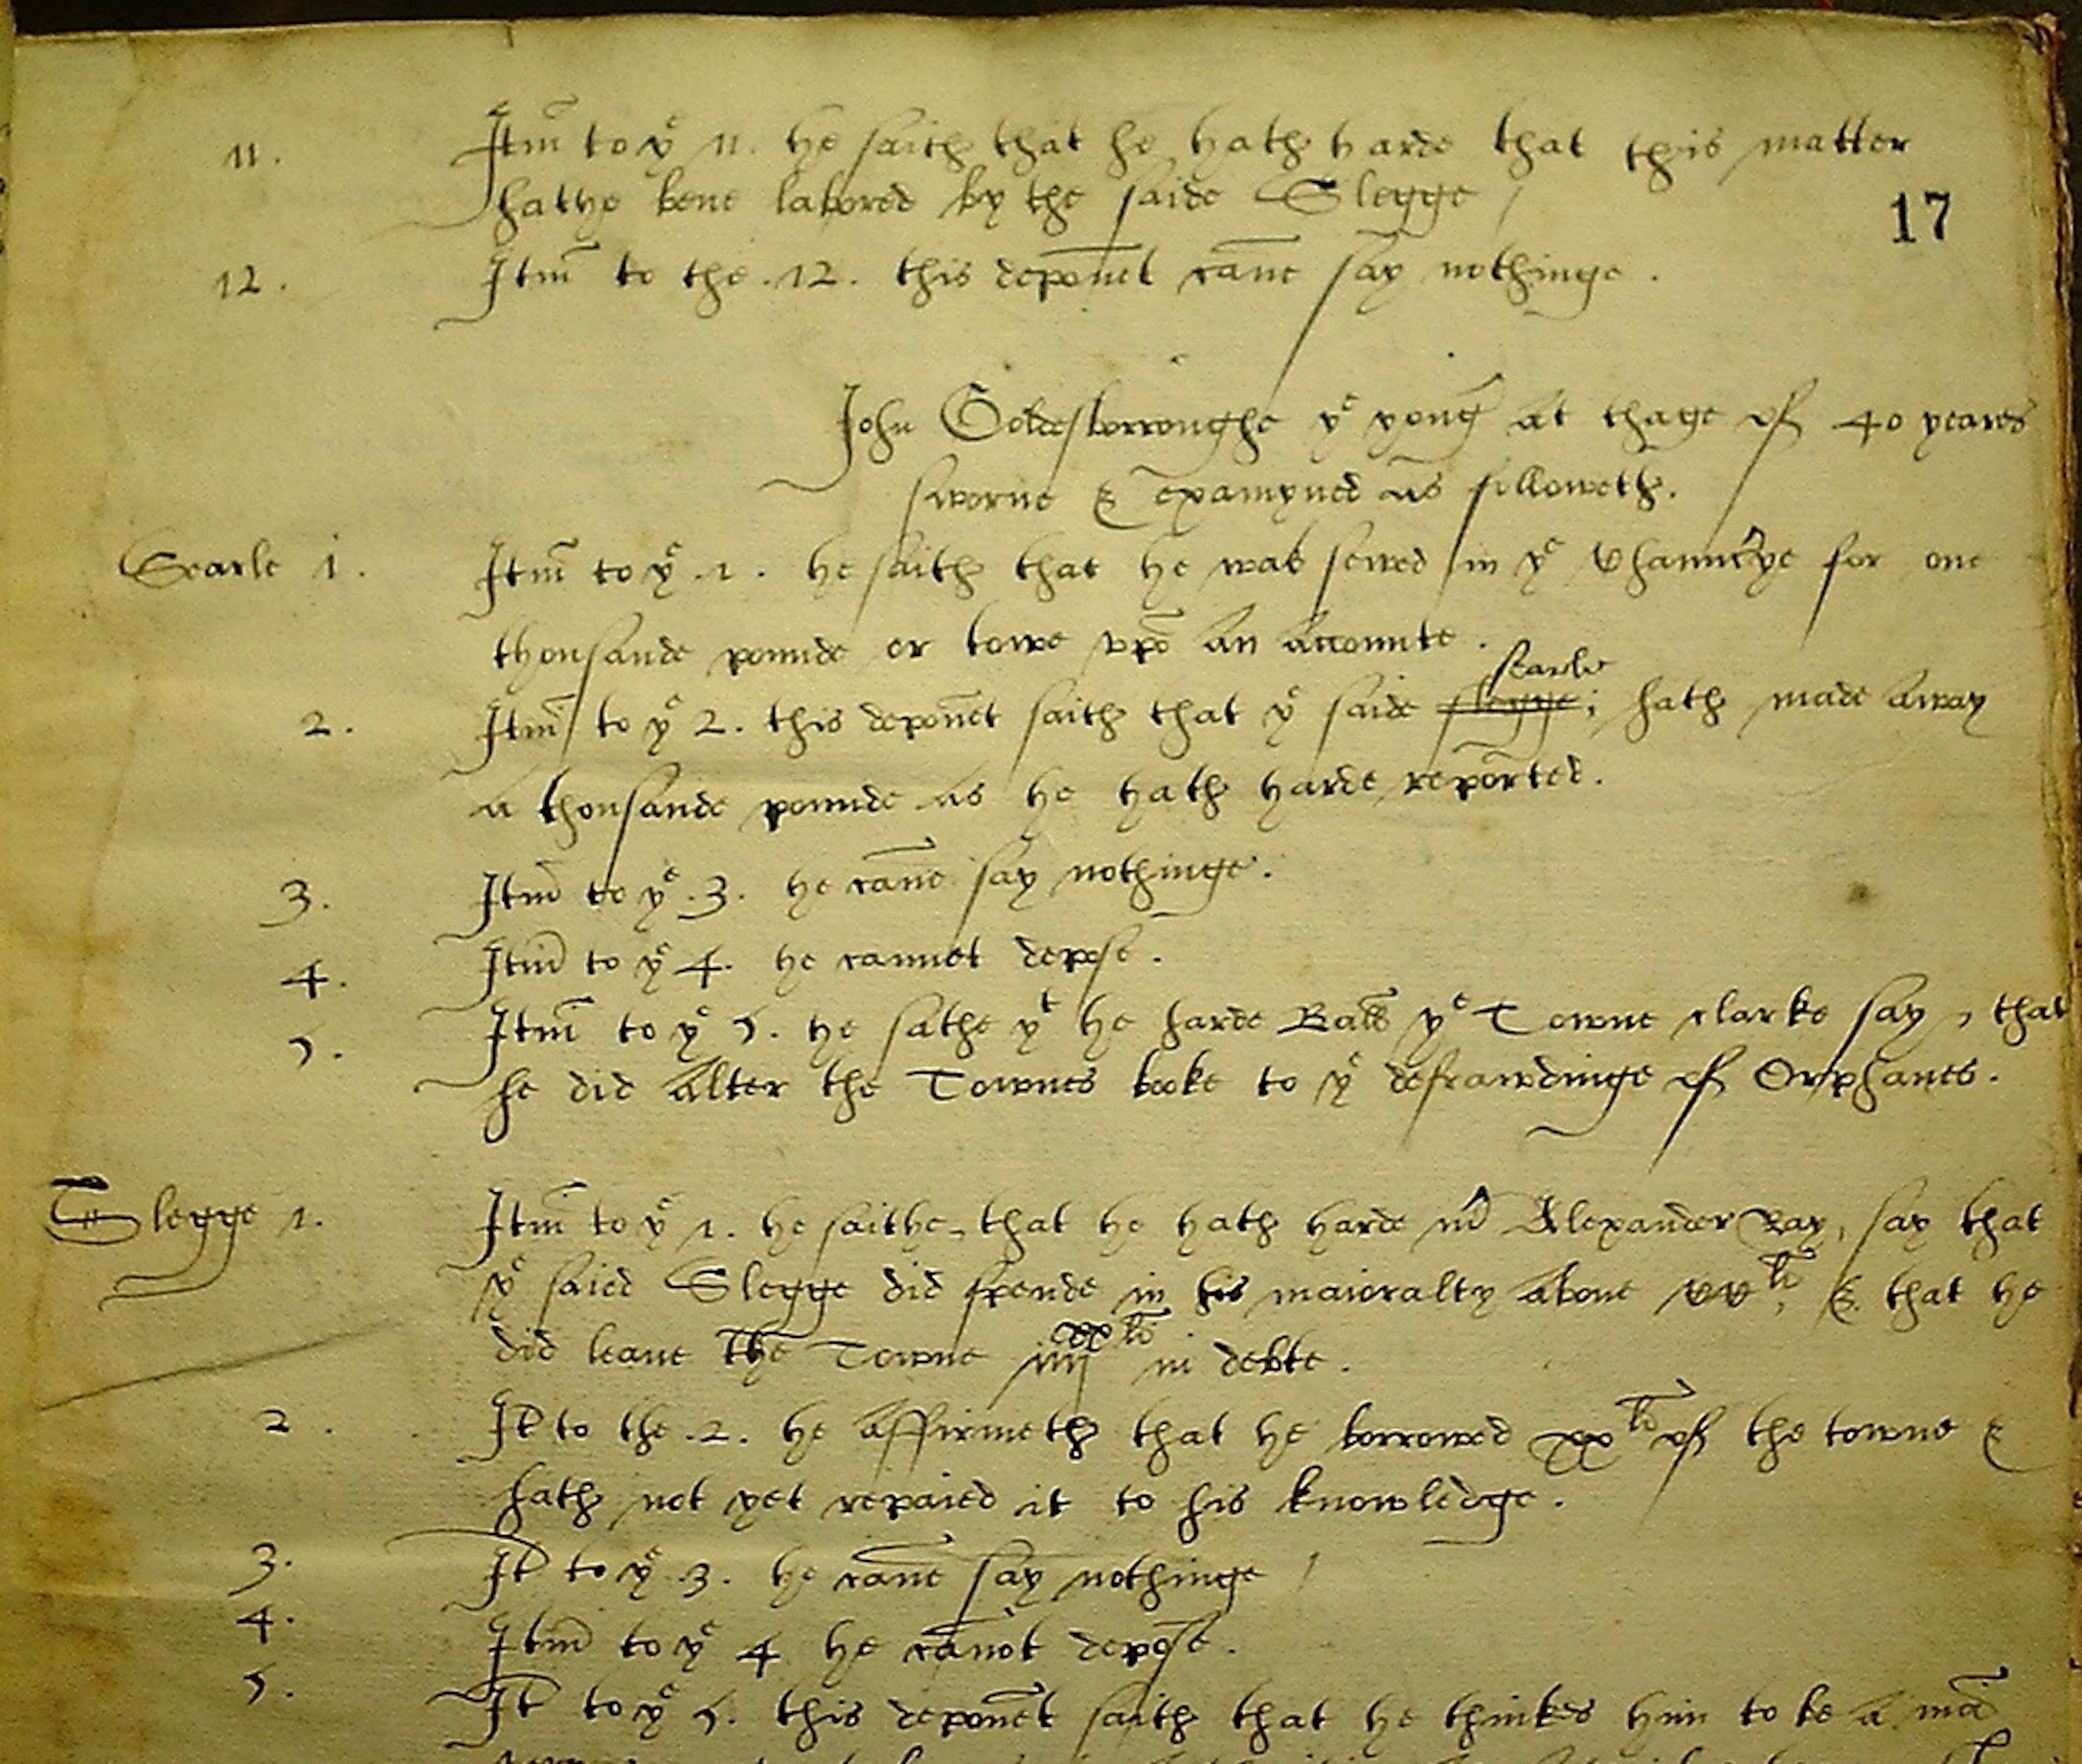 11. Itm̄ to yͤ 11. he saith that he hath harde that this matter
hathe bene labored by the saide Slegge /
17
12. Itm̄ to the .12. this depon̄et can̄e say nothinge .
John Goldesborroughe yͤ yong at thage of 40 yeares
sworne & examyned as followeth.
Searle 1. Itm̄ to yͤ .1. he saith that he was sewed in yͤ Chauncrye for one
thousande pounde or towe vpō an accounte .
searle
2. Itm̄ to yͤ 2. this depon̄et saith that yͤ saide slegge ; hath made away
a thousande pounde as he hath harde reported.
3. Itm̄ to yͤ .3. he can̄e say nothinge.
4. Itm̄ to yͤ 4. he cannot depose .
5. Itm̄ to yͤ 5. he sathe yᵗ he harde yͤ Towne clarke say , that
he did alter the Townes booke to yͤ defrawdinge of Orphanes.
Slegge 1. Itm̄ to yͤ 1. he saithe that he hath harde mʳ Alexander Ray, say that
yͤ saied Slegge did spende in his maioralty aboue xxˡⁱ, & that he
did leaue the Towne iiijˣˣ ˡⁱ in debte .
2. It̄ to the .2. he affirmeth that he borrowed xxˡⁱ of the towne &
hath not yet repaied it to his knowledge .
3. It̄ to yͤ .3. he can̄e say nothinge /
4. Itm̄ to yͤ 4 he can̄ot depose .
5. It̄ to yͤ 5. this depon̄et saith that he thinkes him to be a mā